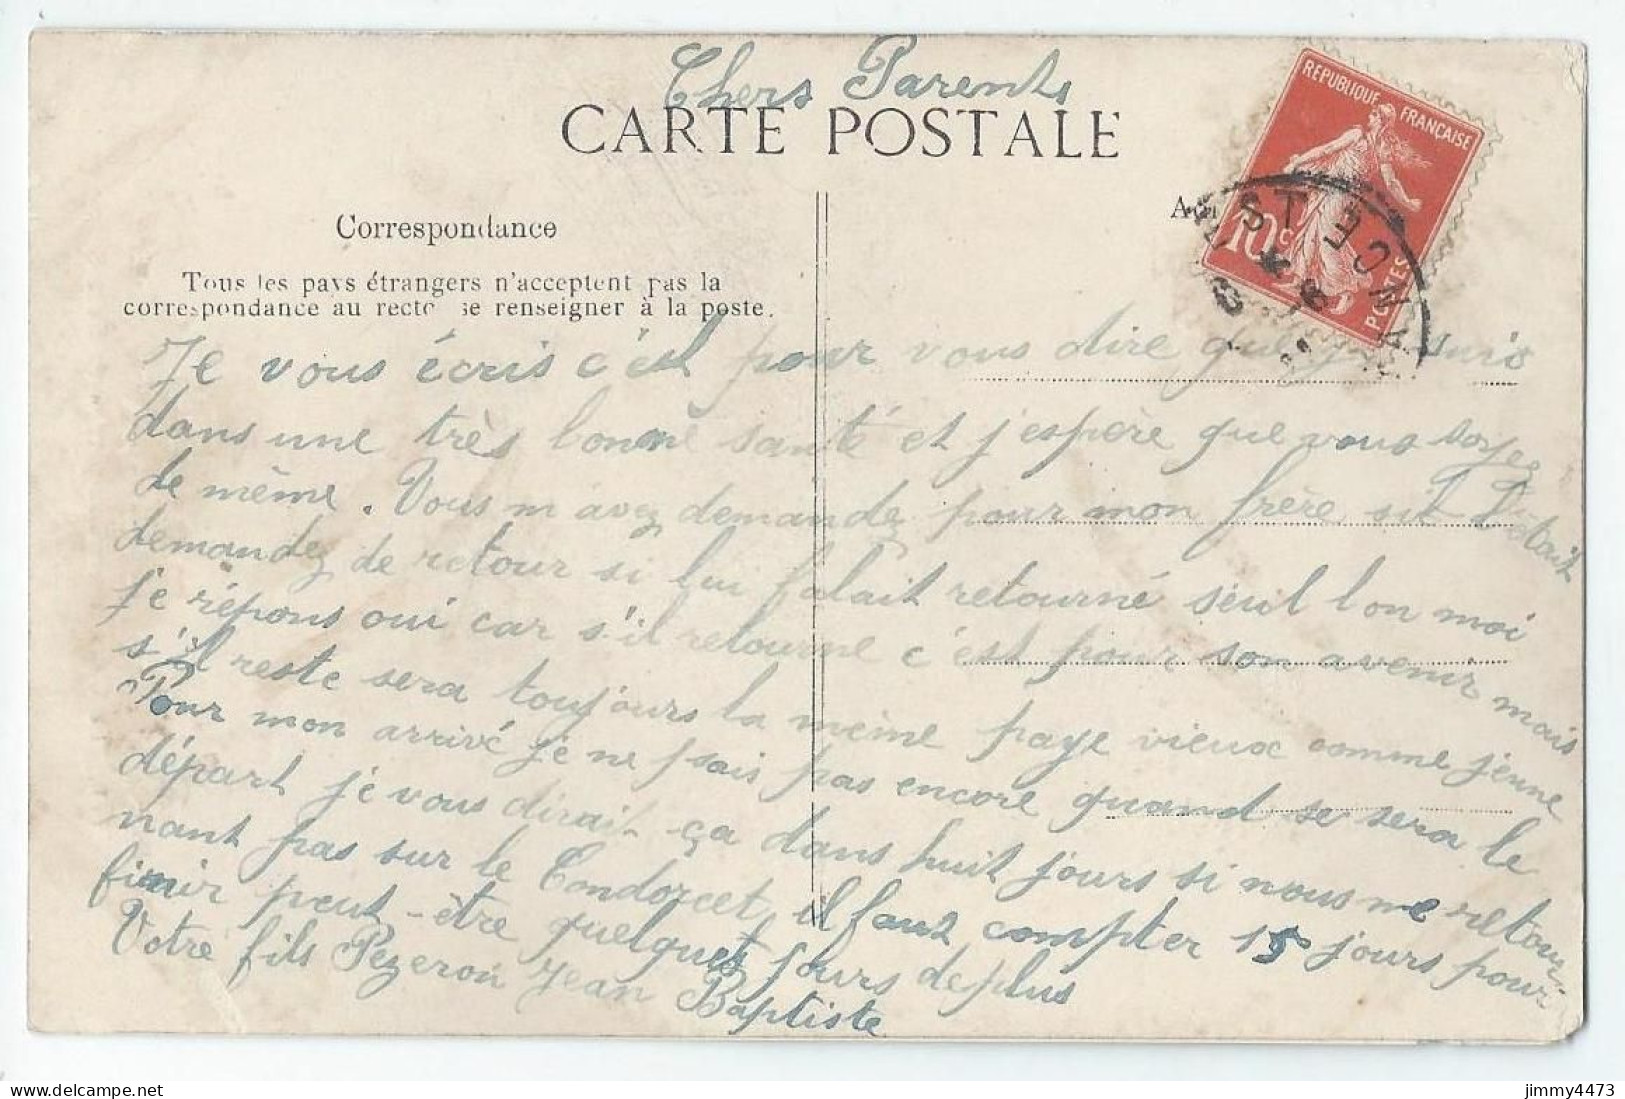 Chers Parents
CARTE POSTALE
REPUBLIQUE FRANÇAISE
10c
POSTES
Correspondance
Tous les pays étrangers n'acceptent pas la
correspondance au recto se renseigner à la poste.
Je vous écris c'est pour vous dire que je suis
dans une très bonne santé et j'espère que vous soyes
de même. Vous m'avez demandez pour mon frère sil était
demandez de retour si lui falait retourné seul l on moi
je répons oui car s'il retourne c'est pour son avenir mais
s'il reste sera toujours la même paye vieux comme jeune
Pour mon arrivé je ne sais pas encore quand se sera le
départ je vous dirait ça dans huit jours si nous ne retour-
nant pas sur le Condorcet, il faut compter 15 jours pour
finir peut-être quelques jours de plus
Votre fils Pezeron Jean Baptiste
jimmy4473